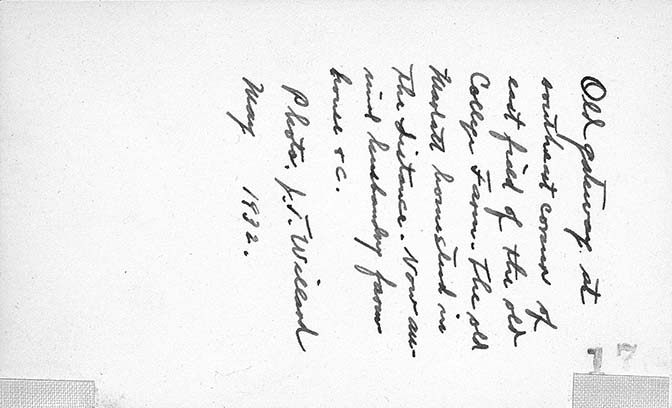 Old gateway at
southeast corner of
east field of the old
College Farm. The old
Marlatt homestead in
the distance. Now an-
imal husbandry farm
house &c.
Photo. J.T. Willard
May 1932.
17